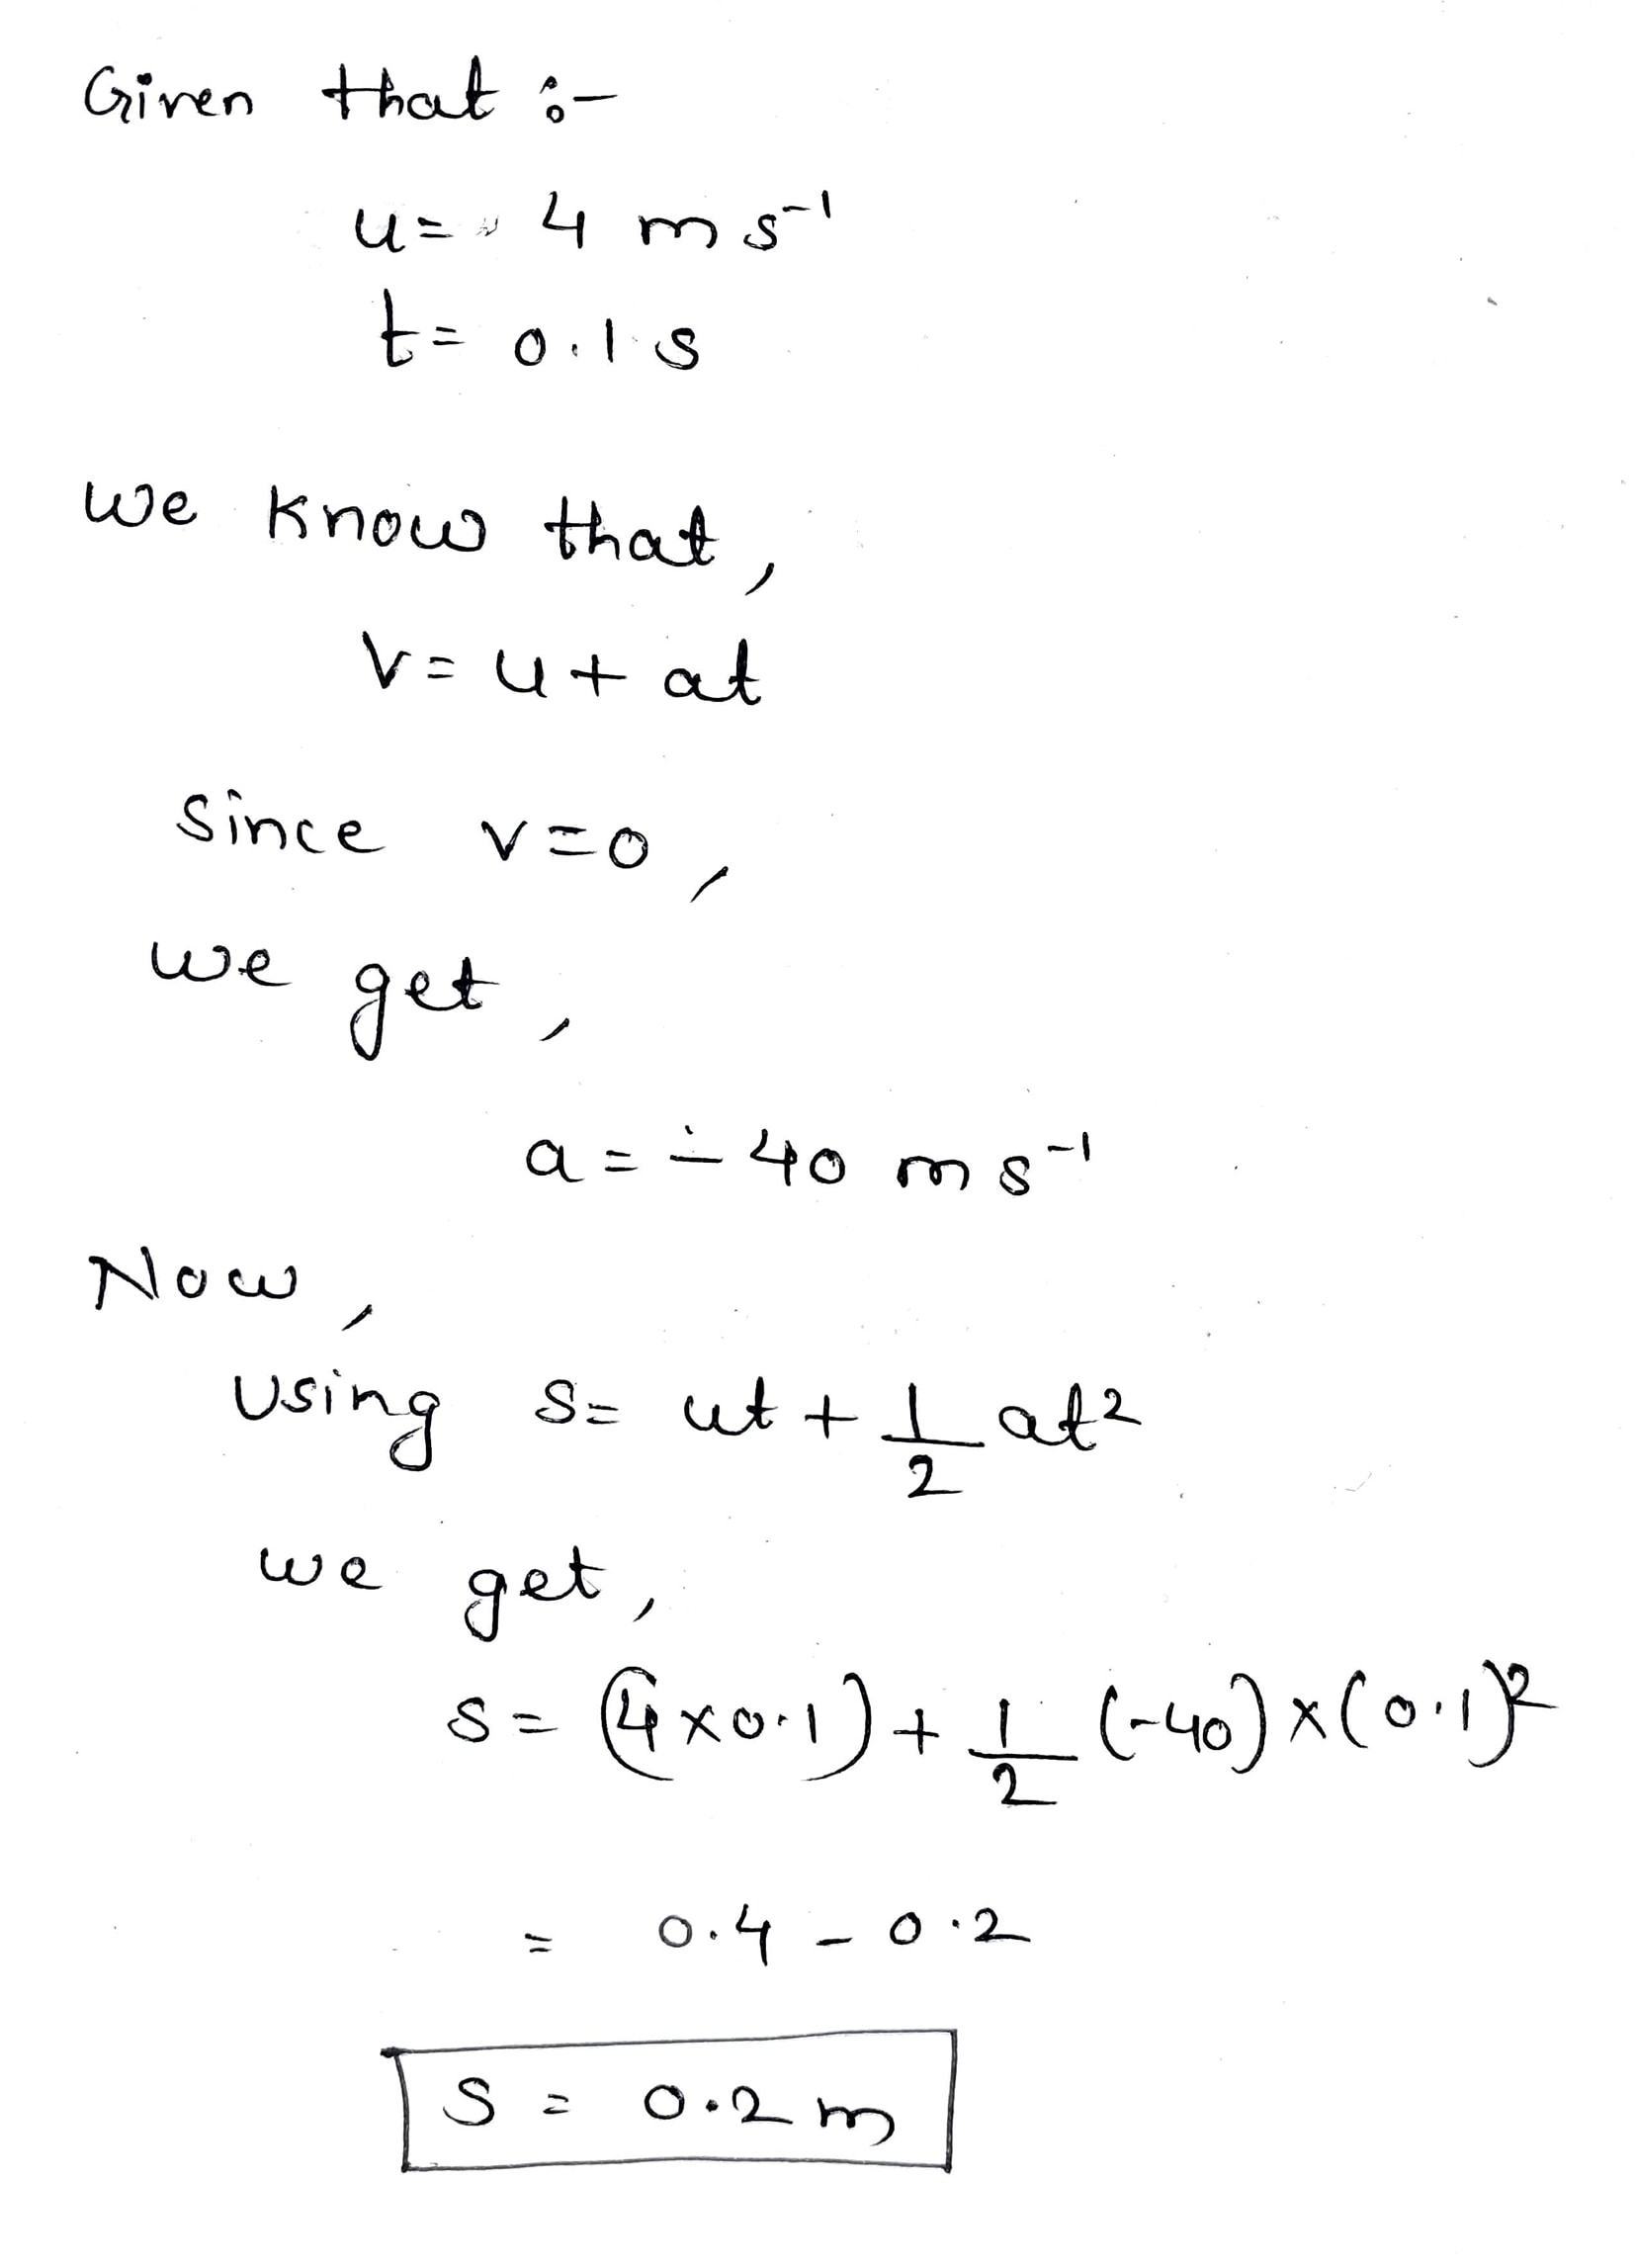 Given that :-
u = 4 m s⁻¹
t = 0.1 s
We know that,
v = u + at
Since v = 0,
We get,
a = - 40 m s⁻¹
Now,
Using s = ut + 1/2 at²
we get,
s = (4 × 0.1) + 1/2 (-40) × (0.1)²
= 0.4 - 0.2
S = 0.2 m